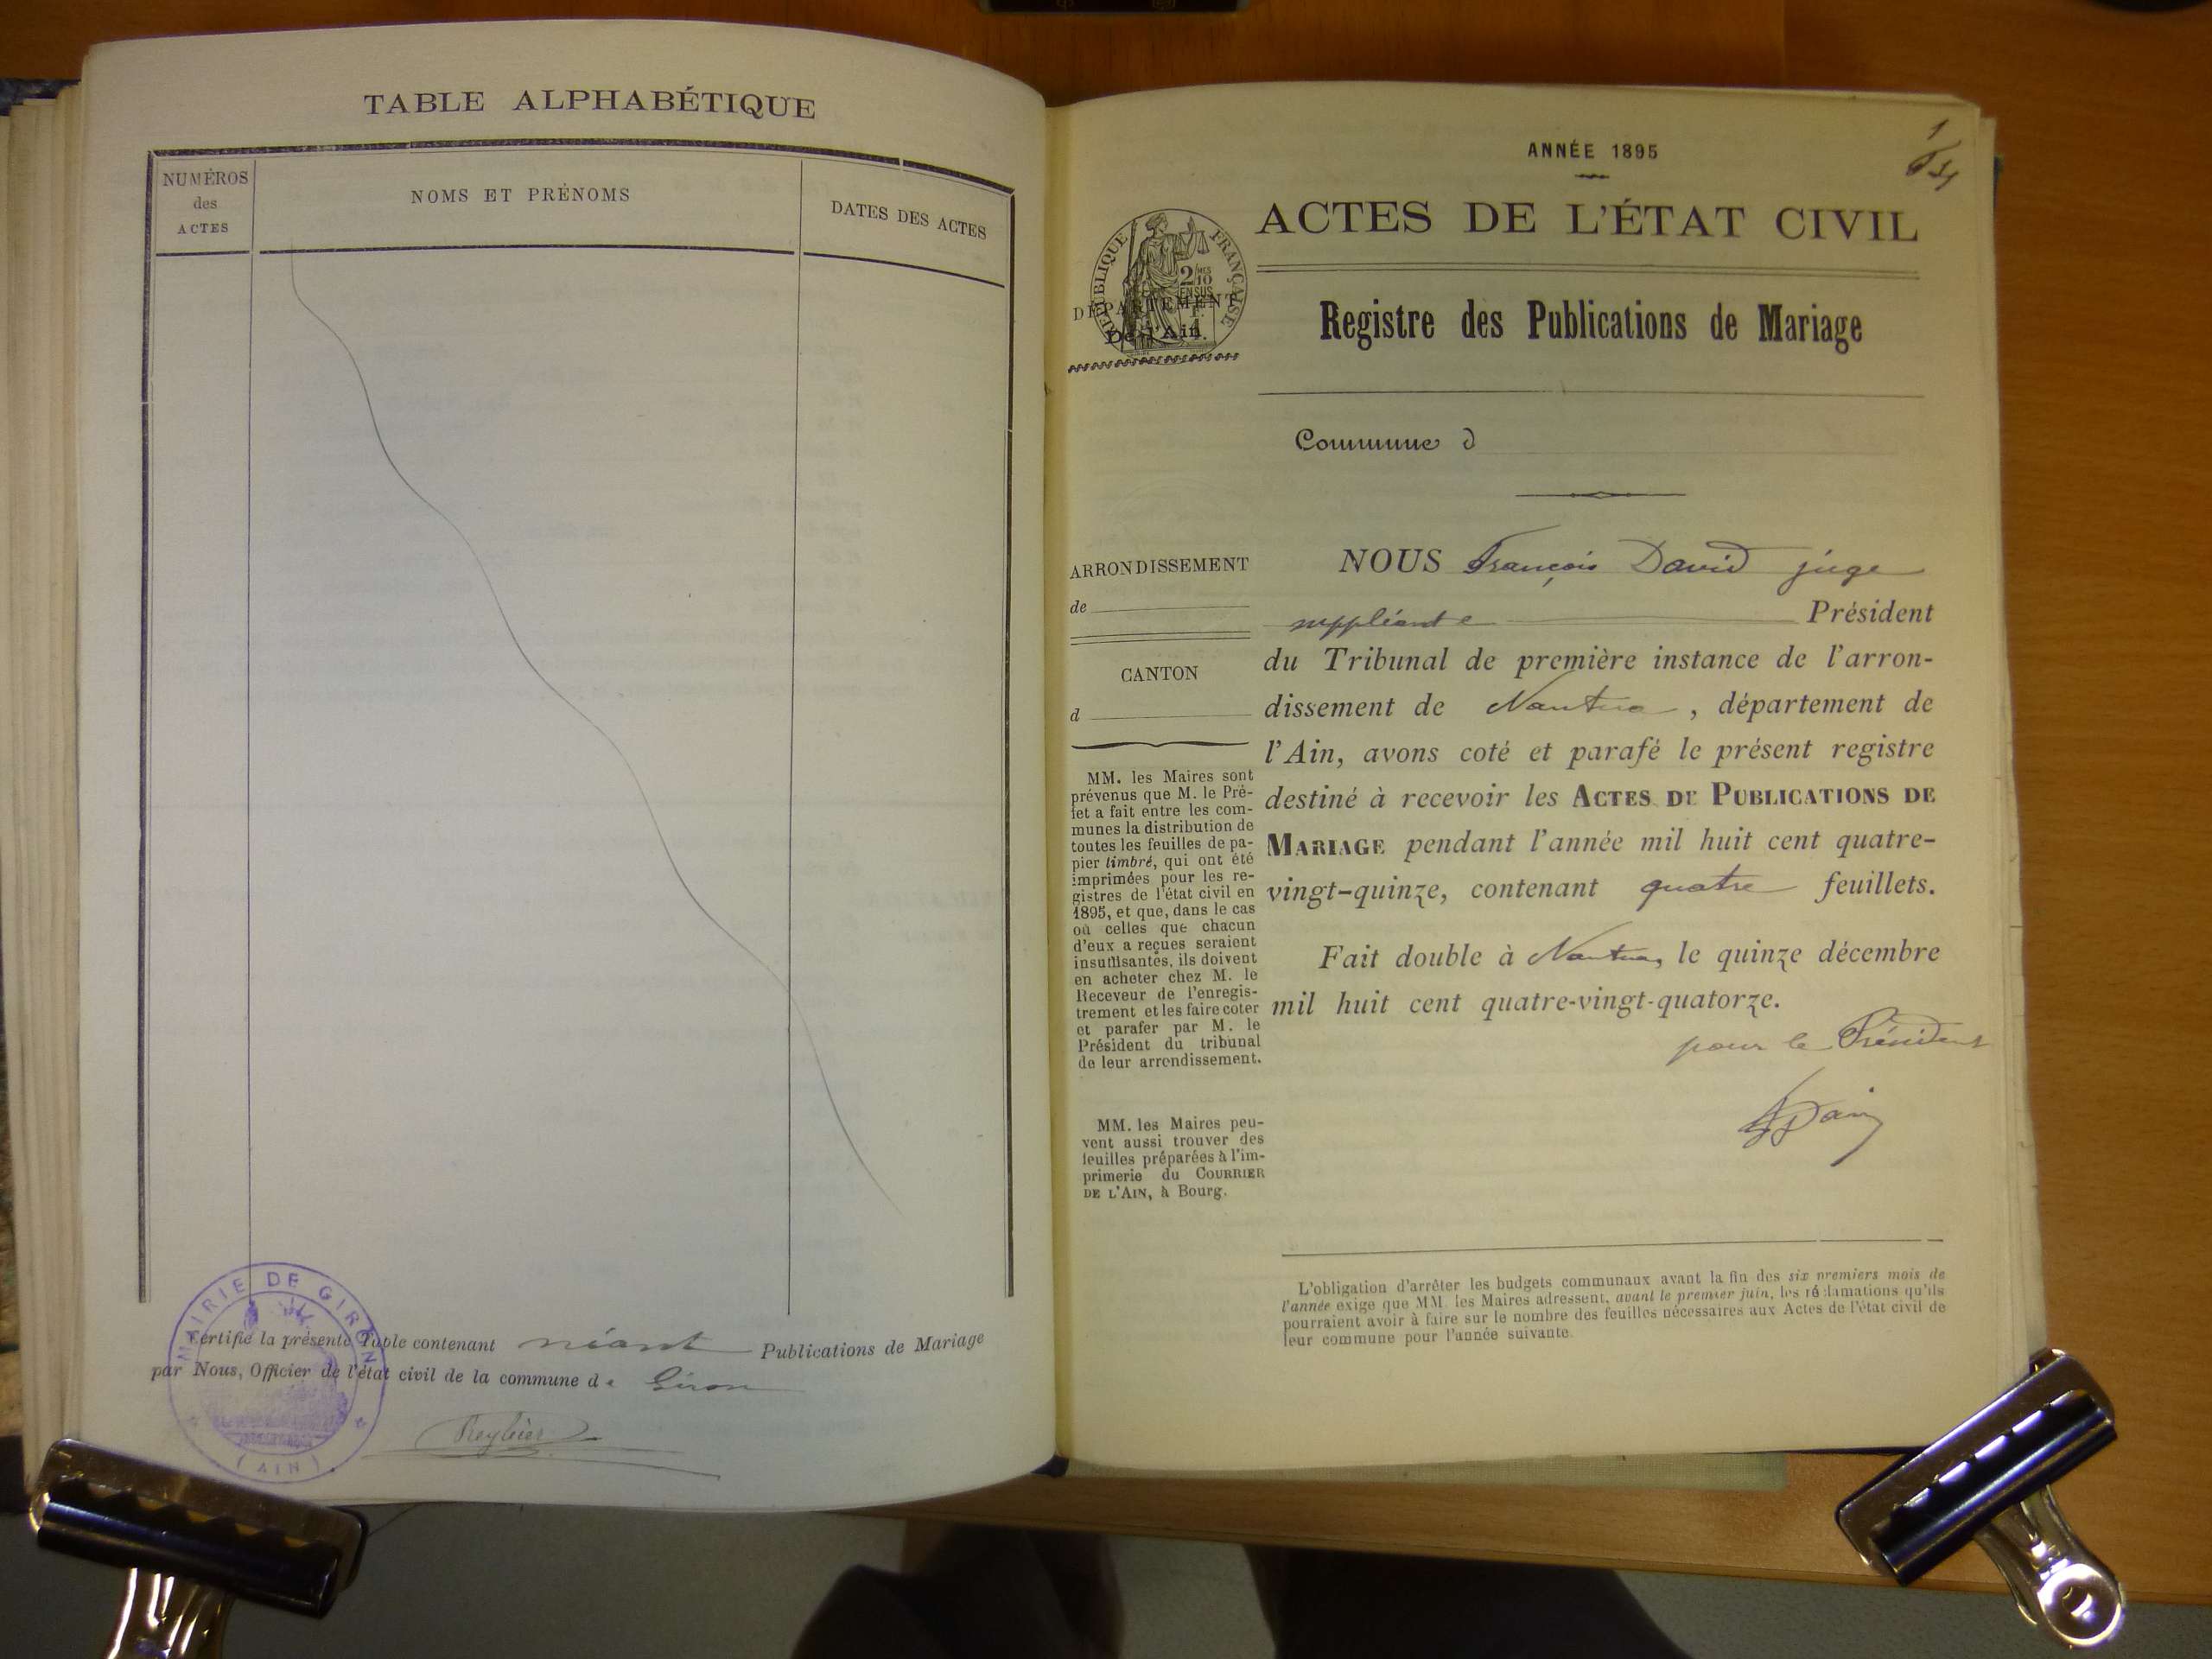 TABLE ALPHABÉTIQUE
NUMÉROS
des
ACTES
NOMS ET PRÉNOMS
DATES DES ACTES
MAIRIE DE GIRON
(AIN)
Certifié la présente Table contenant néant Publications de Mariage
par Nous, Officier de l'état civil de la commune de Giron
ANNÉE 1895
1
ACTES DE L'ÉTAT CIVIL
RÉPUBLIQUE FRANÇAISE
2/10
EN SUS
DÉPARTEMENT
De l'Ain.
Registre des Publications de Mariage
Commune d
ARRONDISSEMENT
de
CANTON
d
MM. les Maires sont
prévenus que M. le Pré-
fet a fait entre les com-
munes la distribution de
toutes les feuilles de pa-
pier timbré, qui ont été
imprimées pour les re-
gistres de l'état civil en
1895, et que, dans le cas
où celles que chacun
d'eux a reçues seraient
insuffisantes, ils doivent
en acheter chez M. le
Receveur de l'enregis-
trement et les faire coter
et parafer par M. le
Président du tribunal
de leur arrondissement.
MM. les Maires peu-
vent aussi trouver des
feuilles préparées à l'im-
primerie du COURRIER
DE L'AIN, à Bourg.
NOUS François David juge
suppléant Président
du Tribunal de première instance de l'arron-
dissement de Nantua, département de
l'Ain, avons coté et parafé le présent registre
destiné à recevoir les ACTES DE PUBLICATIONS DE
MARIAGE pendant l'année mil huit cent quatre-
vingt-quinze, contenant quatre feuillets.
Fait double à Nantua, le quinze décembre
mil huit cent quatre-vingt-quatorze.
pour le Président
L'obligation d'arrêter les budgets communaux avant la fin des six premiers mois de
l'année exige que MM. les Maires adressent, avant le premier juin, les réclamations qu'ils
pourraient avoir à faire sur le nombre des feuilles nécessaires aux Actes de l'état civil de
leur commune pour l'année suivante.